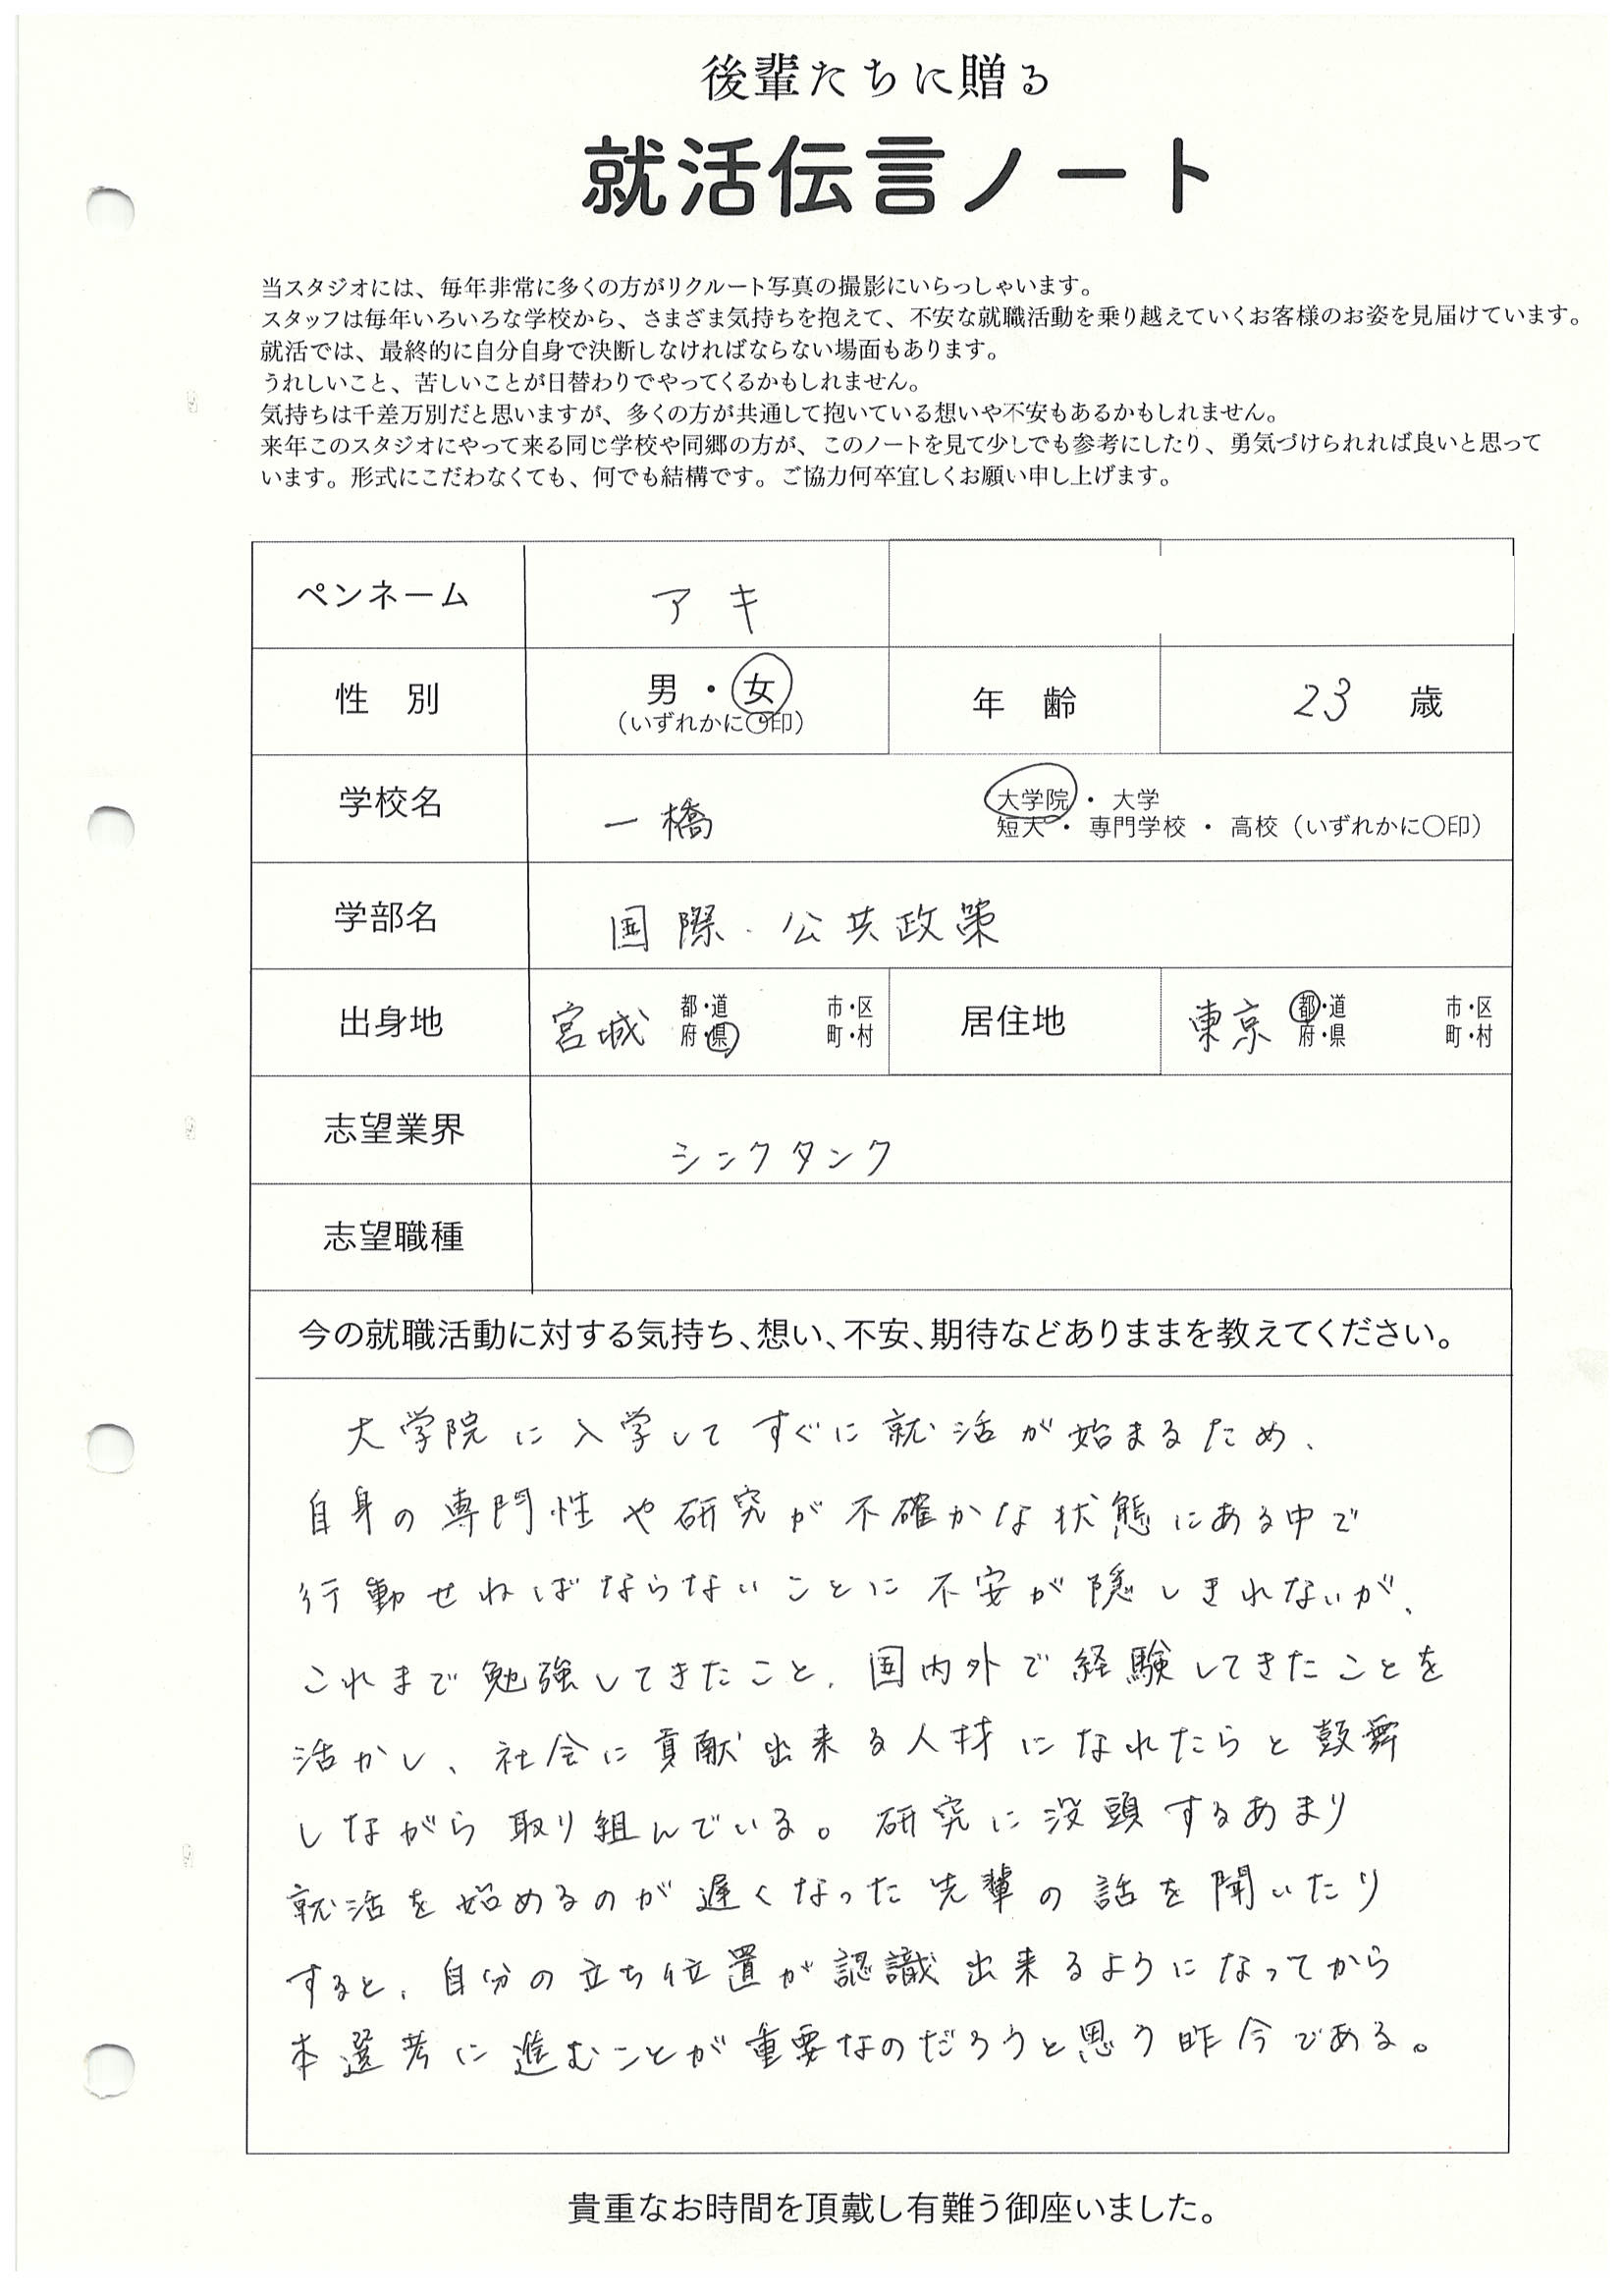 後輩たちに贈る
就活伝言ノート
当スタジオには、毎年非常に多くの方がリクルート写真の撮影にいらっしゃいます。
スタッフは毎年いろいろな学校から、さまざま気持ちを抱えて、不安な就職活動を乗り越えていくお客様のお姿を見届けています。
就活では、最終的に自分自身で決断しなければならない場面もあります。
うれしいこと、苦しいことが日替わりでやってくるかもしれません。
気持ちは千差万別だと思いますが、多くの方が共通して抱いている想いや不安もあるかもしれません。
来年このスタジオにやって来る同じ学校や同郷の方が、このノートを見て少しでも参考にしたり、勇気づけられれば良いと思って
います。形式にこだわなくても、何でも結構です。ご協力何卒宜しくお願い申し上げます。
ペンネーム アキ
性 別 男 ・ 女 年 齢 23 歳
（いずれかに〇印）
学校名 一橋 大学院 ・ 大学
短大 ・ 専門学校 ・ 高校（いずれかに〇印）
学部名 国際・公共政策
出身地 宮城 都・道 市・区 居住地 東京 都・道 市・区
府・県 町・村 府・県 町・村
志望業界 シンクタンク
志望職種
今の就職活動に対する気持ち、想い、不安、期待などありままを教えてください。
大学院に入学してすぐに就活が始まるため、
自身の専門性や研究が不確かな状態にある中で
行動せねばならないことに不安が隠しきれないが、
これまで勉強してきたこと、国内外で経験してきたことを
活かし、社会に貢献出来る人材になれたらと鼓舞
しながら取り組んでいる。研究に没頭するあまり
就活を始めるのが遅くなった先輩の話を聞いたり
すると、自分の立ち位置が認識出来るようになってから
本選考に進むことが重要なのだろうと思う昨今である。
貴重なお時間を頂戴し有難う御座いました。